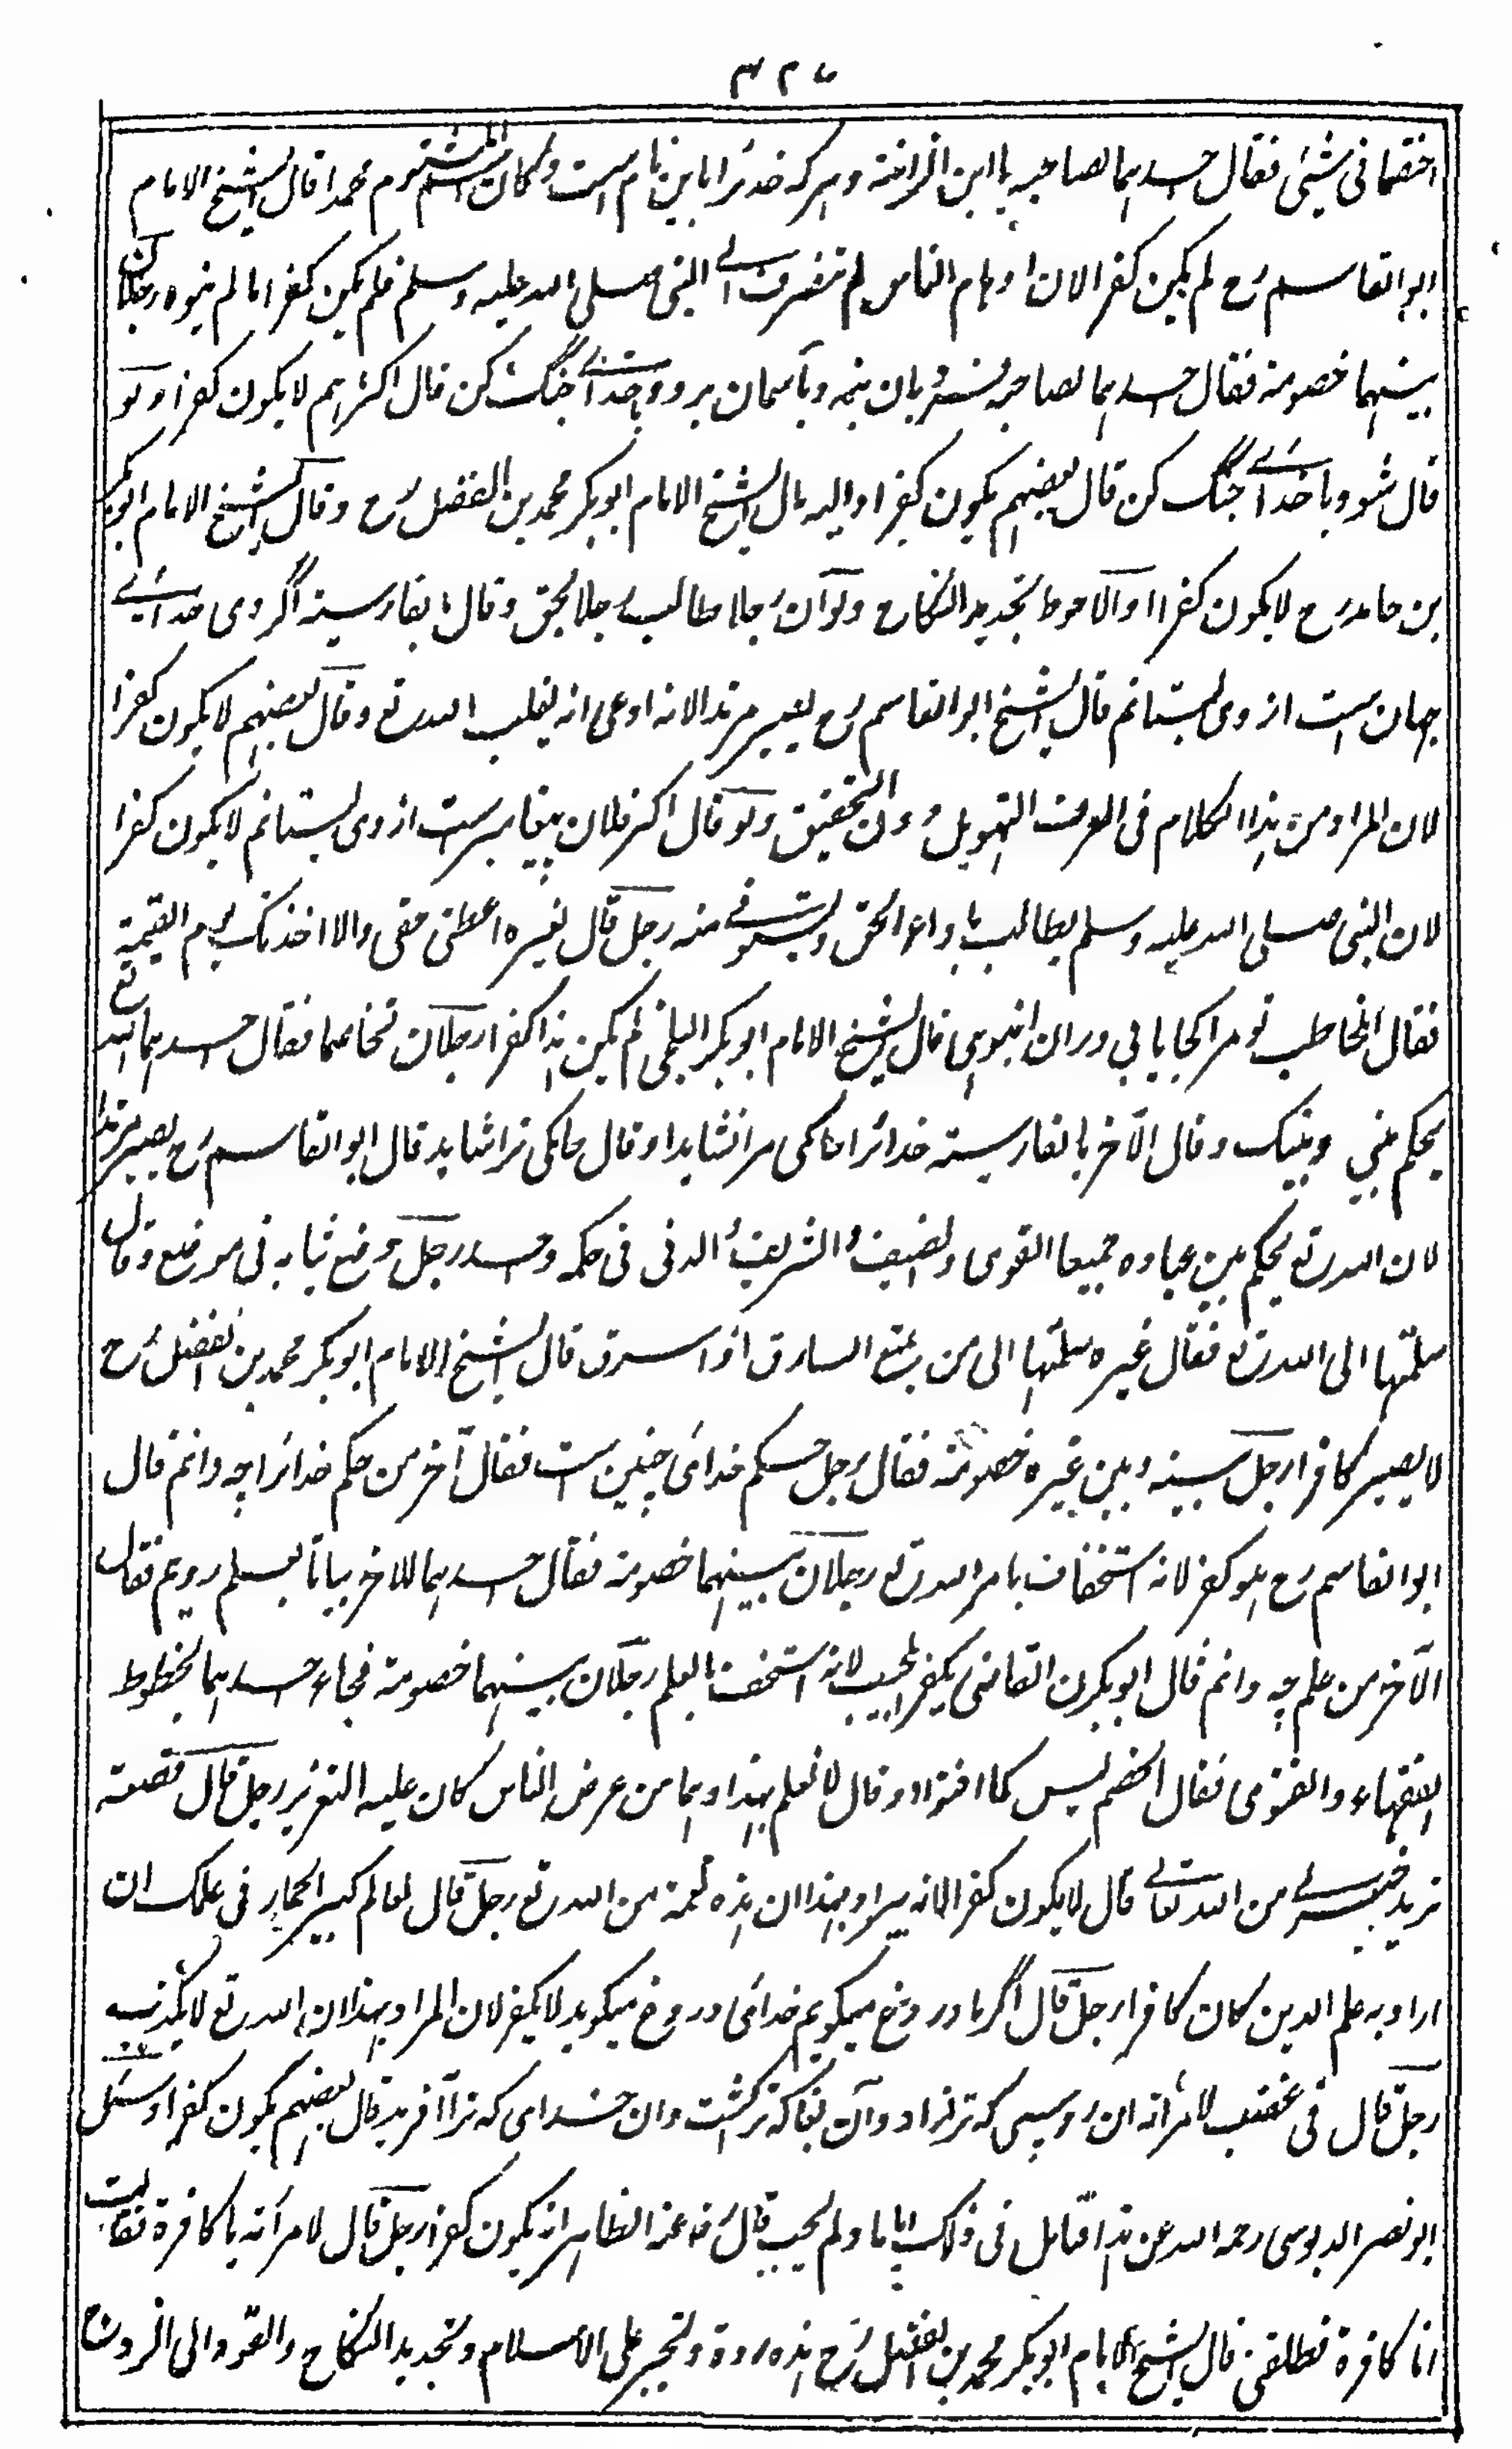 ۳۲۵
اختصما فی شیٔ فقال احدہما لصاحبہ یا ابن الزانیة وہر کہ خدائرا باین نام است وکان المشتوم محمدا قال الشیخ الامام
ابو القاسم رح لم یکن کفرا لان اوہام الناس لم تنصرف الی النبی صلی اللہ علیہ وسلم فلم یکن کفرا ما لم ینوہ رجلان
بینہما خصومة فقال احدہما لصاحبہ نردبان بنہ وبآسمان بر رو وبا خدائے جنگ کن قال اکثرہم لا یکون کفرا ولو
قال شو وبا خدائے جنگ کن قال بعضہم یکون کفرا والیہ مال الشیخ الامام ابو بکر محمد بن الفضل رح وقال الشیخ الامام ابو بکر
بن حامد رح لا یکون کفرا والاحوط تجدید النکاح ولو ان رجلا طالب رجلا بحق وقال بفارسیة اگر وی خدائے
جہان است از وی بستانم قال الشیخ ابو القاسم رح یصیر مرتدا لانہ ادعی انہ یغلب اللہ تع وقال بعضہم لا یکون کفرا
لان المراد من ہذا الکلام فی العرف التہویل دون التحقیق ولو قال اگر فلان پیغابرست از وی بستانم لا یکون کفرا
لان النبی صلی اللہ علیہ وسلم یطالب باداء الحق ویستوفے منہ رجل قال لغیرہ اعطنی حقی والا اخذ منک یوم القیمة
فقال المخاطب تو مرا کجا یابی دران انبوہی قال الشیخ الامام ابو بکر البلخی لم یکن ہذا کفرا رجلان تخاصما فقال احدہما اللہ تع
یحکم بینی وبینک وقال الآخر بالفارسیة خدائرا حاکمی مرا نشاید او قال حاکمی ترا شاید قال ابو القاسم رح یصیر مرتدا
لان اللہ تع یحکم بین عبادہ جمیعا القوی والضعیف والشریف والدنی فی حکمہ واحد رجل وضع ثیابہ فی موضع وقال
سلمتہا الی اللہ تع فقال غیرہ سلمتہا الی من یمنع السارق اذا سرق قال الشیخ الامام ابو بکر محمد بن الفضل رح
لا یصیر کافرا رجل بینہ وبین غیرہ خصومة فقال رجل حکم خدائی چنین ست فقال آخر من حکم خدائرا چہ دانم قال
ابو القاسم رح ہو کفر لانہ استخفاف بامر اللہ تع رجلان بینہما خصومة فقال احدہما للاخر بیا تا بعلم رویم فقال
الآخر من علم چہ دانم قال ابو بکر القاضی یکفر المجیب لانہ استخف بالعلم رجلان بینہما خصومة فجاء احدہما بخطوط
الفقہاء والفتوی فقال الخصم لیس کما افتوا او قال لا نعلم بہذا وہما من عرض الناس کان علیہ التعزیر رجل قال قصعة
ثرید خیر لے من اللہ تعالے قال لا یکون کفرا لانہ یراد بہذا ان ہذہ نعمة من اللہ تع رجل قال لعالم کیر الحمار فی علمک ان
اراد بہ علم الدین کان کافرا رجل قال اگر ما دروغ میگویم خدائی دروغ میگوید لا یکفر لان المراد بہذا ان اللہ تع لا یکذبہ
رجل قال فی غضب لامرأتہ ان روسپی کہ ترا زاد وآن بغا کہ ترا کشت وان خدای کہ ترا آفرید قال بعضہم یکون کفرا وسئل
ابو نصر الدبوسی رحمہ اللہ عن ہذا فتامل فی ذلک ایاما ولم یجب قال رض عنہ الظاہر انہ یکون کفرا رجل قال لامرأتہ یا کافرة فقالت
انا کافرة فطلقنی قال الشیخ الامام ابو بکر محمد بن الفضل رح ہذہ ردة وتجبر علی الاسلام وتجدید النکاح والعود الی الزوج